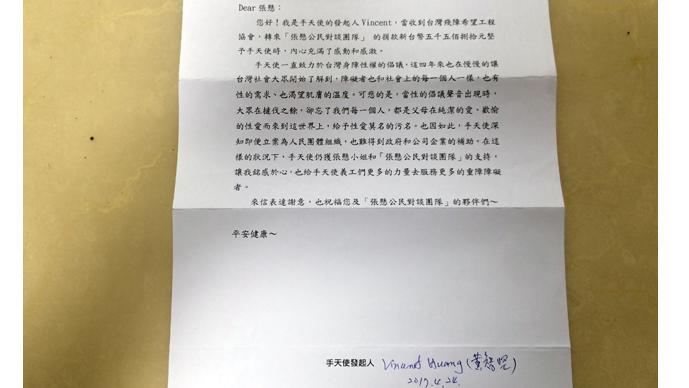 Dear 張懸：
您好！我是手天使的發起人Vincent，當收到台灣殘障希望工程
協會，轉來「張懸公民對談團隊」的捐款新台幣五千五佰捌拾元整
予手天使時，內心充滿了感動和感激。
手天使一直致力於台灣身障性權的倡議，這四年來也在慢慢的讓
台灣社會大眾開始了解到，障礙者也和社會上的每一個人一樣，也有
性的需求、也渴望肌膚的溫度。可悲的是，當性的倡議聲音出現時，
大眾在撻伐之餘，卻忘了我們每一個人，都是父母在純潔的愛，歡愉
的性愛而來到這世界上，給予性愛莫名的污名。也因如此，手天使深
知即便立案為人民團體組織，也難得到政府和公司企業的補助。在這
樣的狀況下，手天使仍獲張懸小姐和「張懸公民對談團隊」的支持，
讓我銘感於心，也給手天使義工們更多的力量去服務更多的重障障礙
者。
來信表達謝意，也祝福您及「張懸公民對談團隊」的夥伴們～
平安健康～
手天使發起人 Vincent Huang (黃智堅)
2017.4.24.